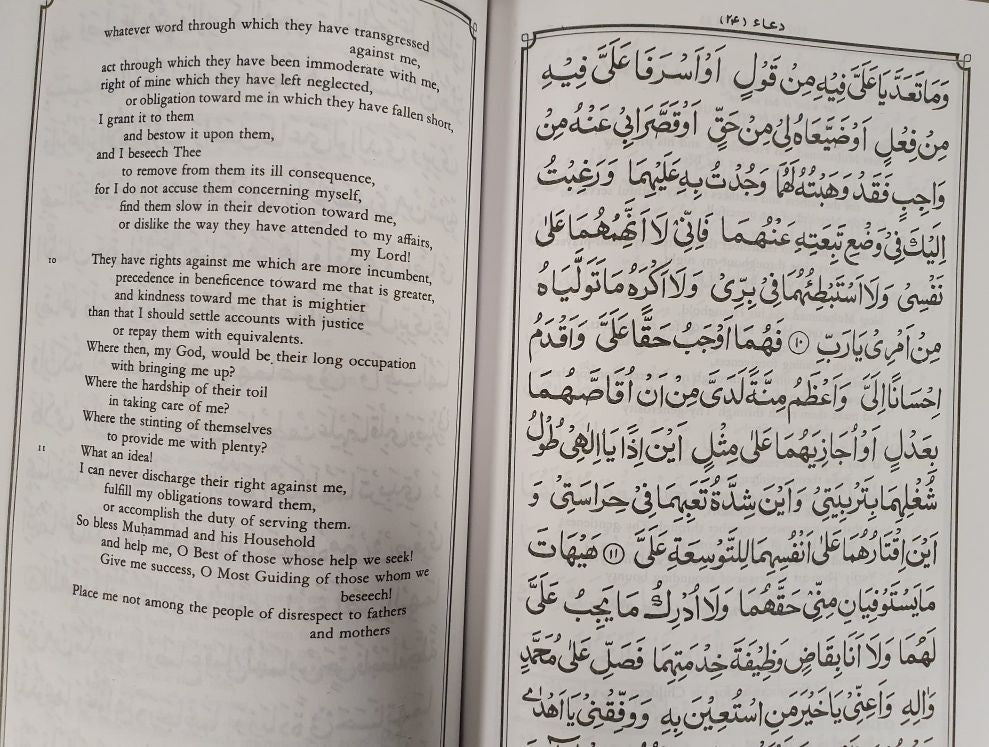 whatever word through which they have transgressed
against me,
act through which they have been immoderate with me,
right of mine which they have left neglected,
or obligation toward me in which they have fallen short,
I grant it to them
and bestow it upon them,
and I beseech Thee
to remove from them its ill consequence,
for I do not accuse them concerning myself,
find them slow in their devotion toward me,
or dislike the way they have attended to my affairs,
my Lord!
10 They have rights against me which are more incumbent,
precedence in beneficence toward me that is greater,
and kindness toward me that is mightier
than that I should settle accounts with justice
or repay them with equivalents.
Where then, my God, would be their long occupation
with bringing me up?
Where the hardship of their toil
in taking care of me?
Where the stinting of themselves
to provide me with plenty?
11 What an idea!
I can never discharge their right against me,
fulfill my obligations toward them,
or accomplish the duty of serving them.
So bless Muḥammad and his Household
and help me, O Best of those whose help we seek!
Give me success, O Most Guiding of those whom we
beseech!
Place me not among the people of disrespect to fathers
and mothers
دعاء (٢٤)
وَمَا تَعَدَّيَا عَلَيَّ فِيْهِ مِنْ قَوْلٍ اَوْ اَسْرَفَا عَلَيَّ فِيْهِ
مِنْ فِعْلٍ اَوْ ضَيَّعَاهُ لِيْ مِنْ حَقٍّ اَوْ قَصَّرَا بِيْ عَنْهُ مِنْ
وَاجِبٍ فَقَدْ وَهَبْتُهُ لَهُمَا وَجُدْتُ بِهِ عَلَيْهِمَا وَرَغِبْتُ
اِلَيْكَ فِيْ وَضْعِ تَبِعَتِهِ عَنْهُمَا فَاِنِّيْ لَا اَتَّهِمُهُمَا عَلٰى
نَفْسِيْ وَلَا اَسْتَبْطِئُهُمَا فِيْ بِرِّيْ وَلَا اَكْرَهُ مَا تَوَلَّيَاهُ
مِنْ اَمْرِيْ يَا رَبِّ ١٠ فَهُمَا اَوْجَبُ حَقًّا عَلَيَّ وَاَقْدَمُ
اِحْسَانًا اِلَيَّ وَاَعْظَمُ مِنَّةً لَدَيَّ مِنْ اَنْ اُقَاصَّهُمَا
بِعَدْلٍ اَوْ اُجَازِيَهُمَا عَلٰى مِثْلٍ اَيْنَ اِذًا يَا اِلٰهِيْ طُوْلُ
شُغْلِهِمَا بِتَرْبِيَتِيْ وَاَيْنَ شِدَّةُ تَعَبِهِمَا فِيْ حِرَاسَتِيْ وَ
اَيْنَ اِقْتَارُهُمَا عَلٰى اَنْفُسِهِمَا لِلتَّوْسِعَةِ عَلَيَّ ١١ هَيْهَاتَ
مَا يَسْتَوْفِيَانِ مِنِّيْ حَقَّهُمَا وَلَا اُدْرِكُ مَا يَجِبُ عَلَيَّ
لَهُمَا وَلَا اَنَا بِقَاضٍ وَظِيْفَةَ خِدْمَتِهِمَا فَصَلِّ عَلٰى مُحَمَّدٍ
وَاٰلِهِ وَاَعِنِّيْ يَا خَيْرَ مَنِ اسْتُعِيْنَ بِهِ وَوَفِّقْنِيْ يَا اَهْدٰى